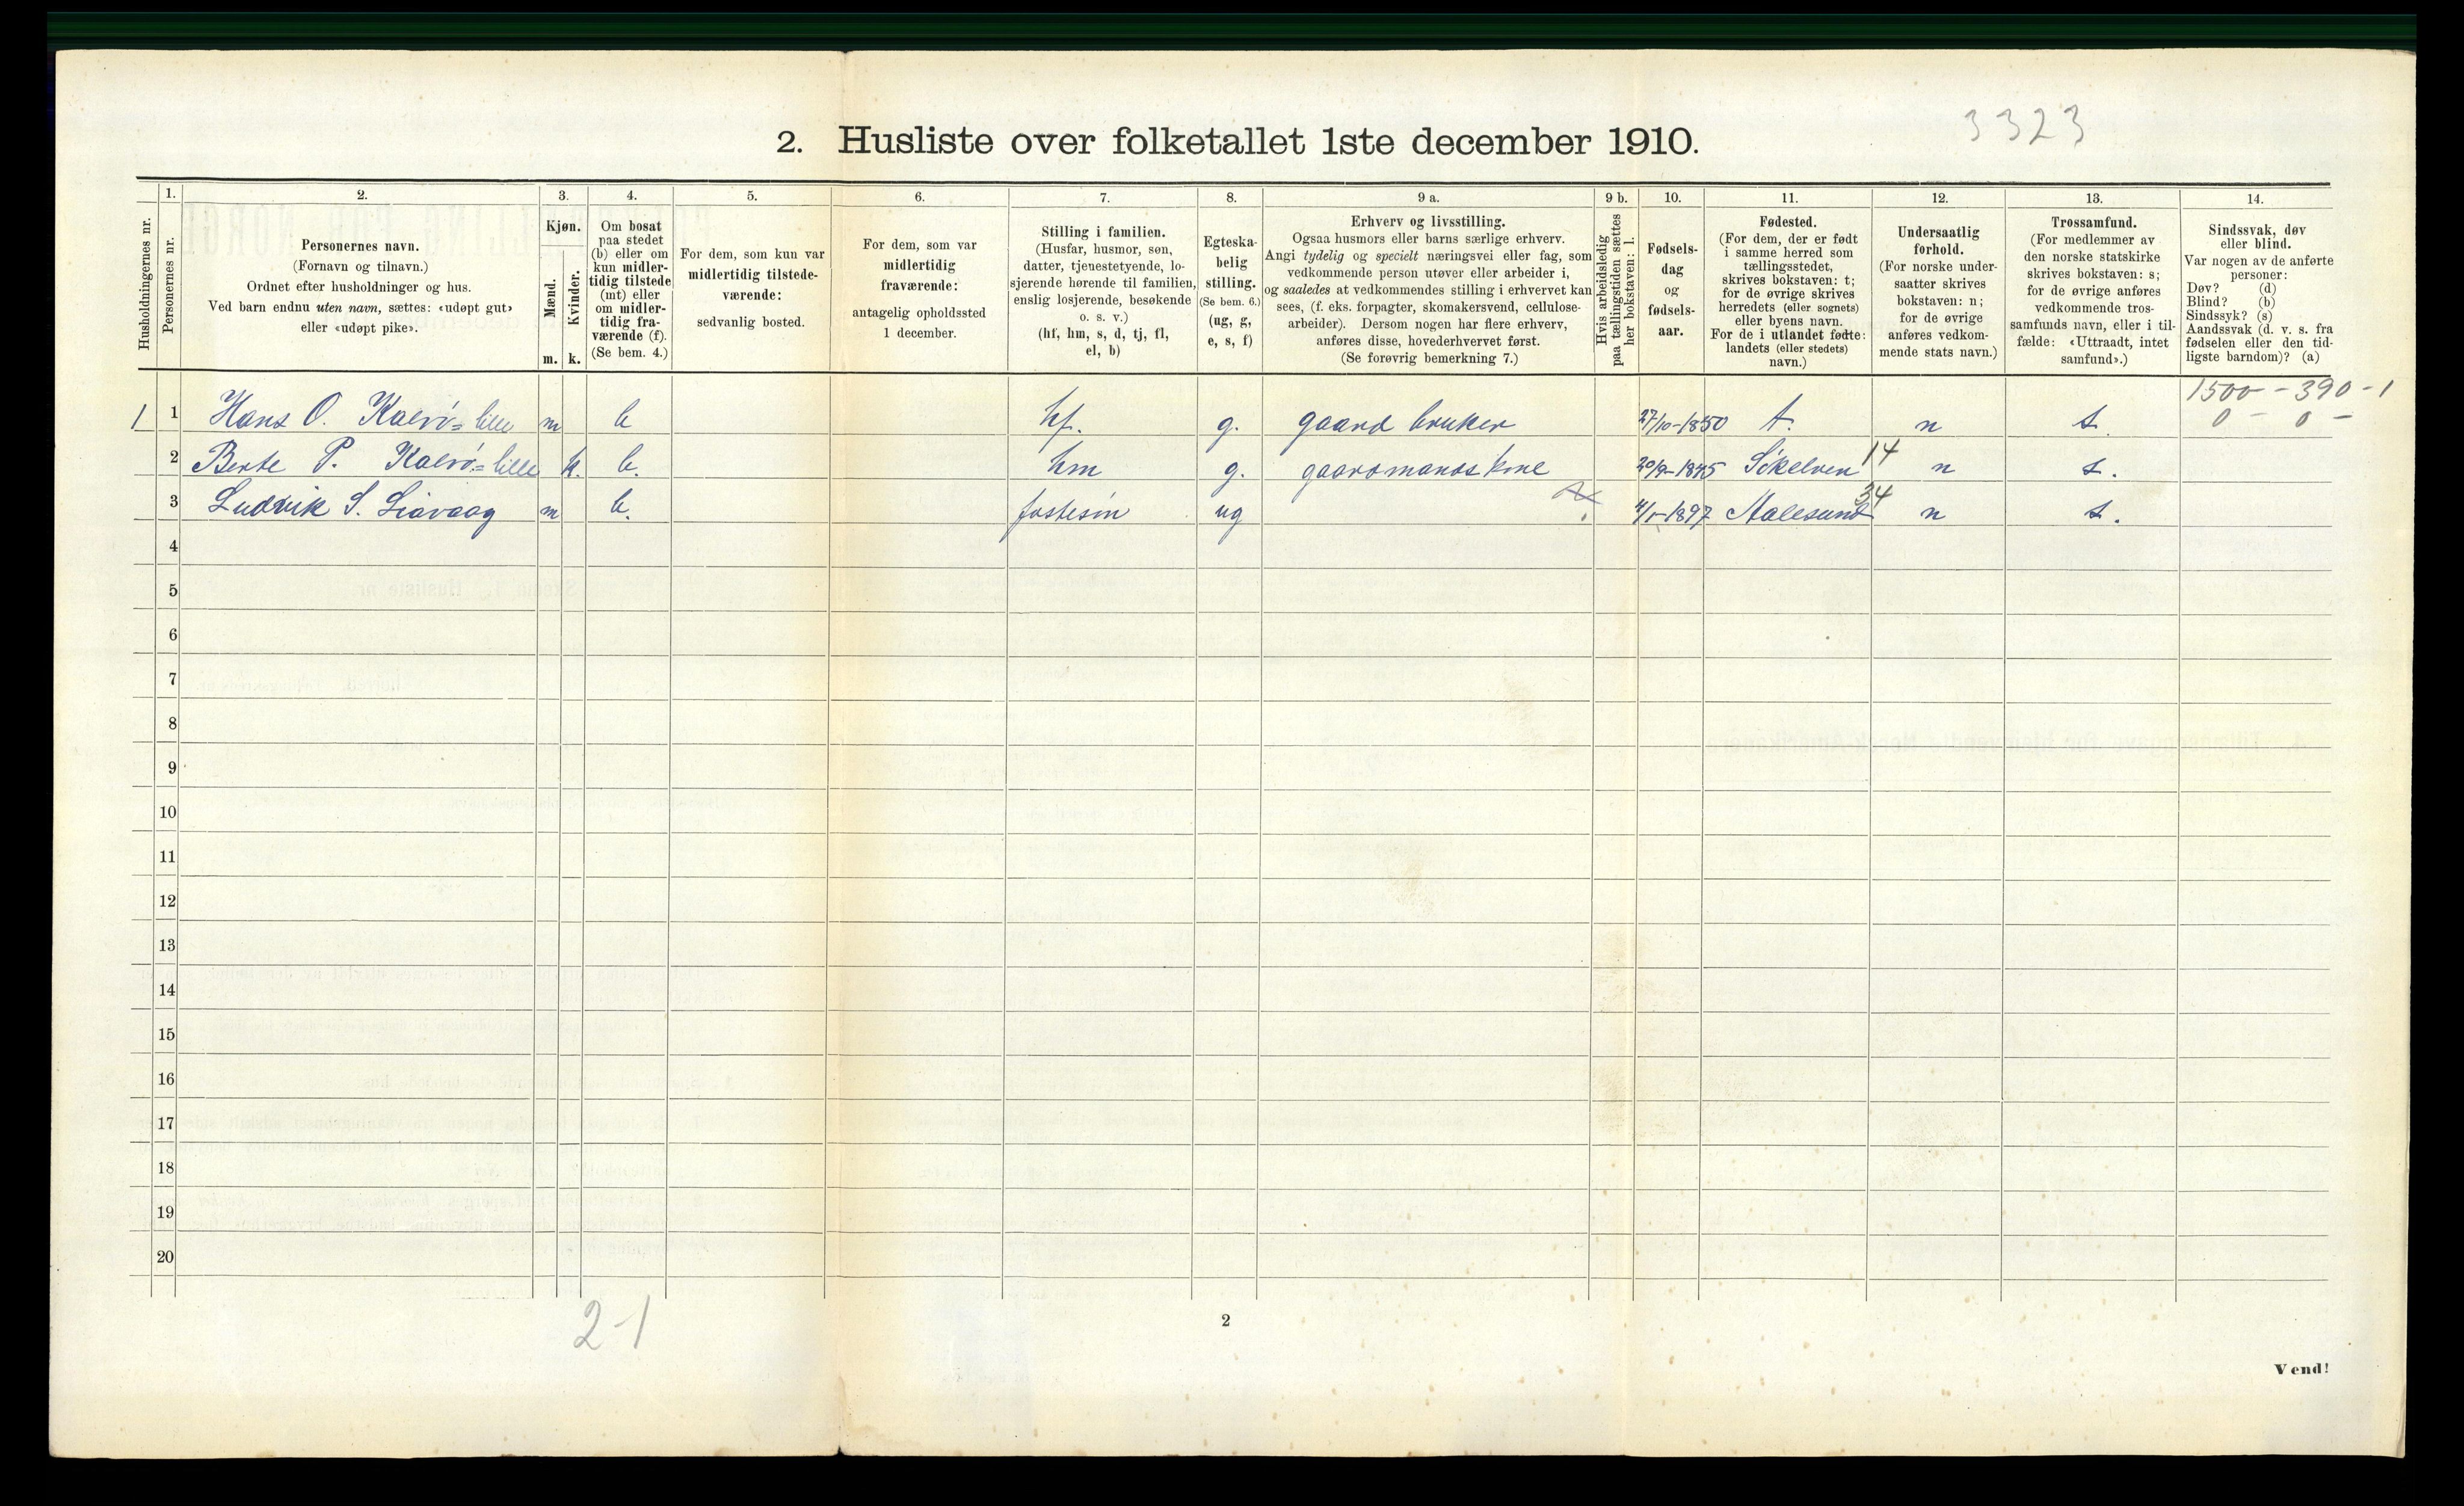 3323
2. Husliste over folketallet 1ste december 1910.
Husholdningernes nr.
1.
Personernes nr.
2.
Personernes navn.
(Fornavn og tilnavn.)
Ordnet efter husholdninger og hus.
Ved barn endnu uten navn, sættes: «udøpt gut»
eller «udøpt pike».
3.
Kjøn.
Mænd.
m.
Kvinder.
k.
4.
Om bosat
paa stedet
(b) eller om
kun midler-
tidig tilstede
(mt) eller
om midler-
tidig fra-
værende (f).
(Se bem. 4.)
5.
For dem, som kun var
midlertidig tilstede-
værende:
sedvanlig bosted.
6.
For dem, som var
midlertidig
fraværende:
antagelig opholdssted
1 december.
7.
Stilling i familien.
(Husfar, husmor, søn,
datter, tjenestetyende, lo-
sjerende hørende til familien,
enslig losjerende, besøkende
o. s. v.)
(hf, hm, s, d, tj, fl,
el, b)
8.
Egteska-
belig
stilling.
(Se bem. 6.)
(ug, g,
e, s, f)
9 a.
Erhverv og livsstilling.
Ogsaa husmors eller barns særlige erhverv.
Angi tydelig og specielt næringsvei eller fag, som
vedkommende person utøver eller arbeider i,
og saaledes at vedkommendes stilling i erhvervet kan
sees, (f. eks. forpagter, skomakersvend, cellulose-
arbeider). Dersom nogen har flere erhverv,
anføres disse, hovederhvervet først.
(Se forøvrig bemerkning 7.)
9 b.
Hvis arbeidsledig
paa tællingstiden sættes
her bokstaven: l.
10.
Fødsels-
dag
og
fødsels-
aar.
11.
Fødested.
(For dem, der er født
i samme herred som
tællingsstedet,
skrives bokstaven: t;
for de øvrige skrives
herredets (eller sognets)
eller byens navn.
For de i utlandet fødte:
landets (eller stedets)
navn.)
12.
Undersaatlig
forhold.
(For norske under-
saatter skrives
bokstaven: n;
for de øvrige
anføres vedkom-
mende stats navn.)
13.
Trossamfund.
(For medlemmer av
den norske statskirke
skrives bokstaven: s;
for de øvrige anføres
vedkommende tros-
samfunds navn, eller i til-
fælde: «Uttraadt, intet
samfund».)
14.
Sindssvak, døv
eller blind.
Var nogen av de anførte
personer:
Døv? (d)
Blind? (b)
Sindssyk? (s)
Aandssvak (d. v. s. fra
fødselen eller den tid-
ligste barndom)? (a)
1500 - 390 - 1
0 - 0 -
1 1 Hans O. Kalvö=lille m b hf. g. gaard bruker 27/10-1850 t. n s.
2 Berte P. Kalvö=lille k. b. hm g. gaardmands kone 20/9-1845 Sökelven 14 n s.
3 Ludvik S. Liavaag m b. fostesön ug 4/1-1897 Aalesund 34 n s.
4
5
6
7
8
9
10
11
12
13
14
15
16
17
18
19
20
2-1
2
Vend!